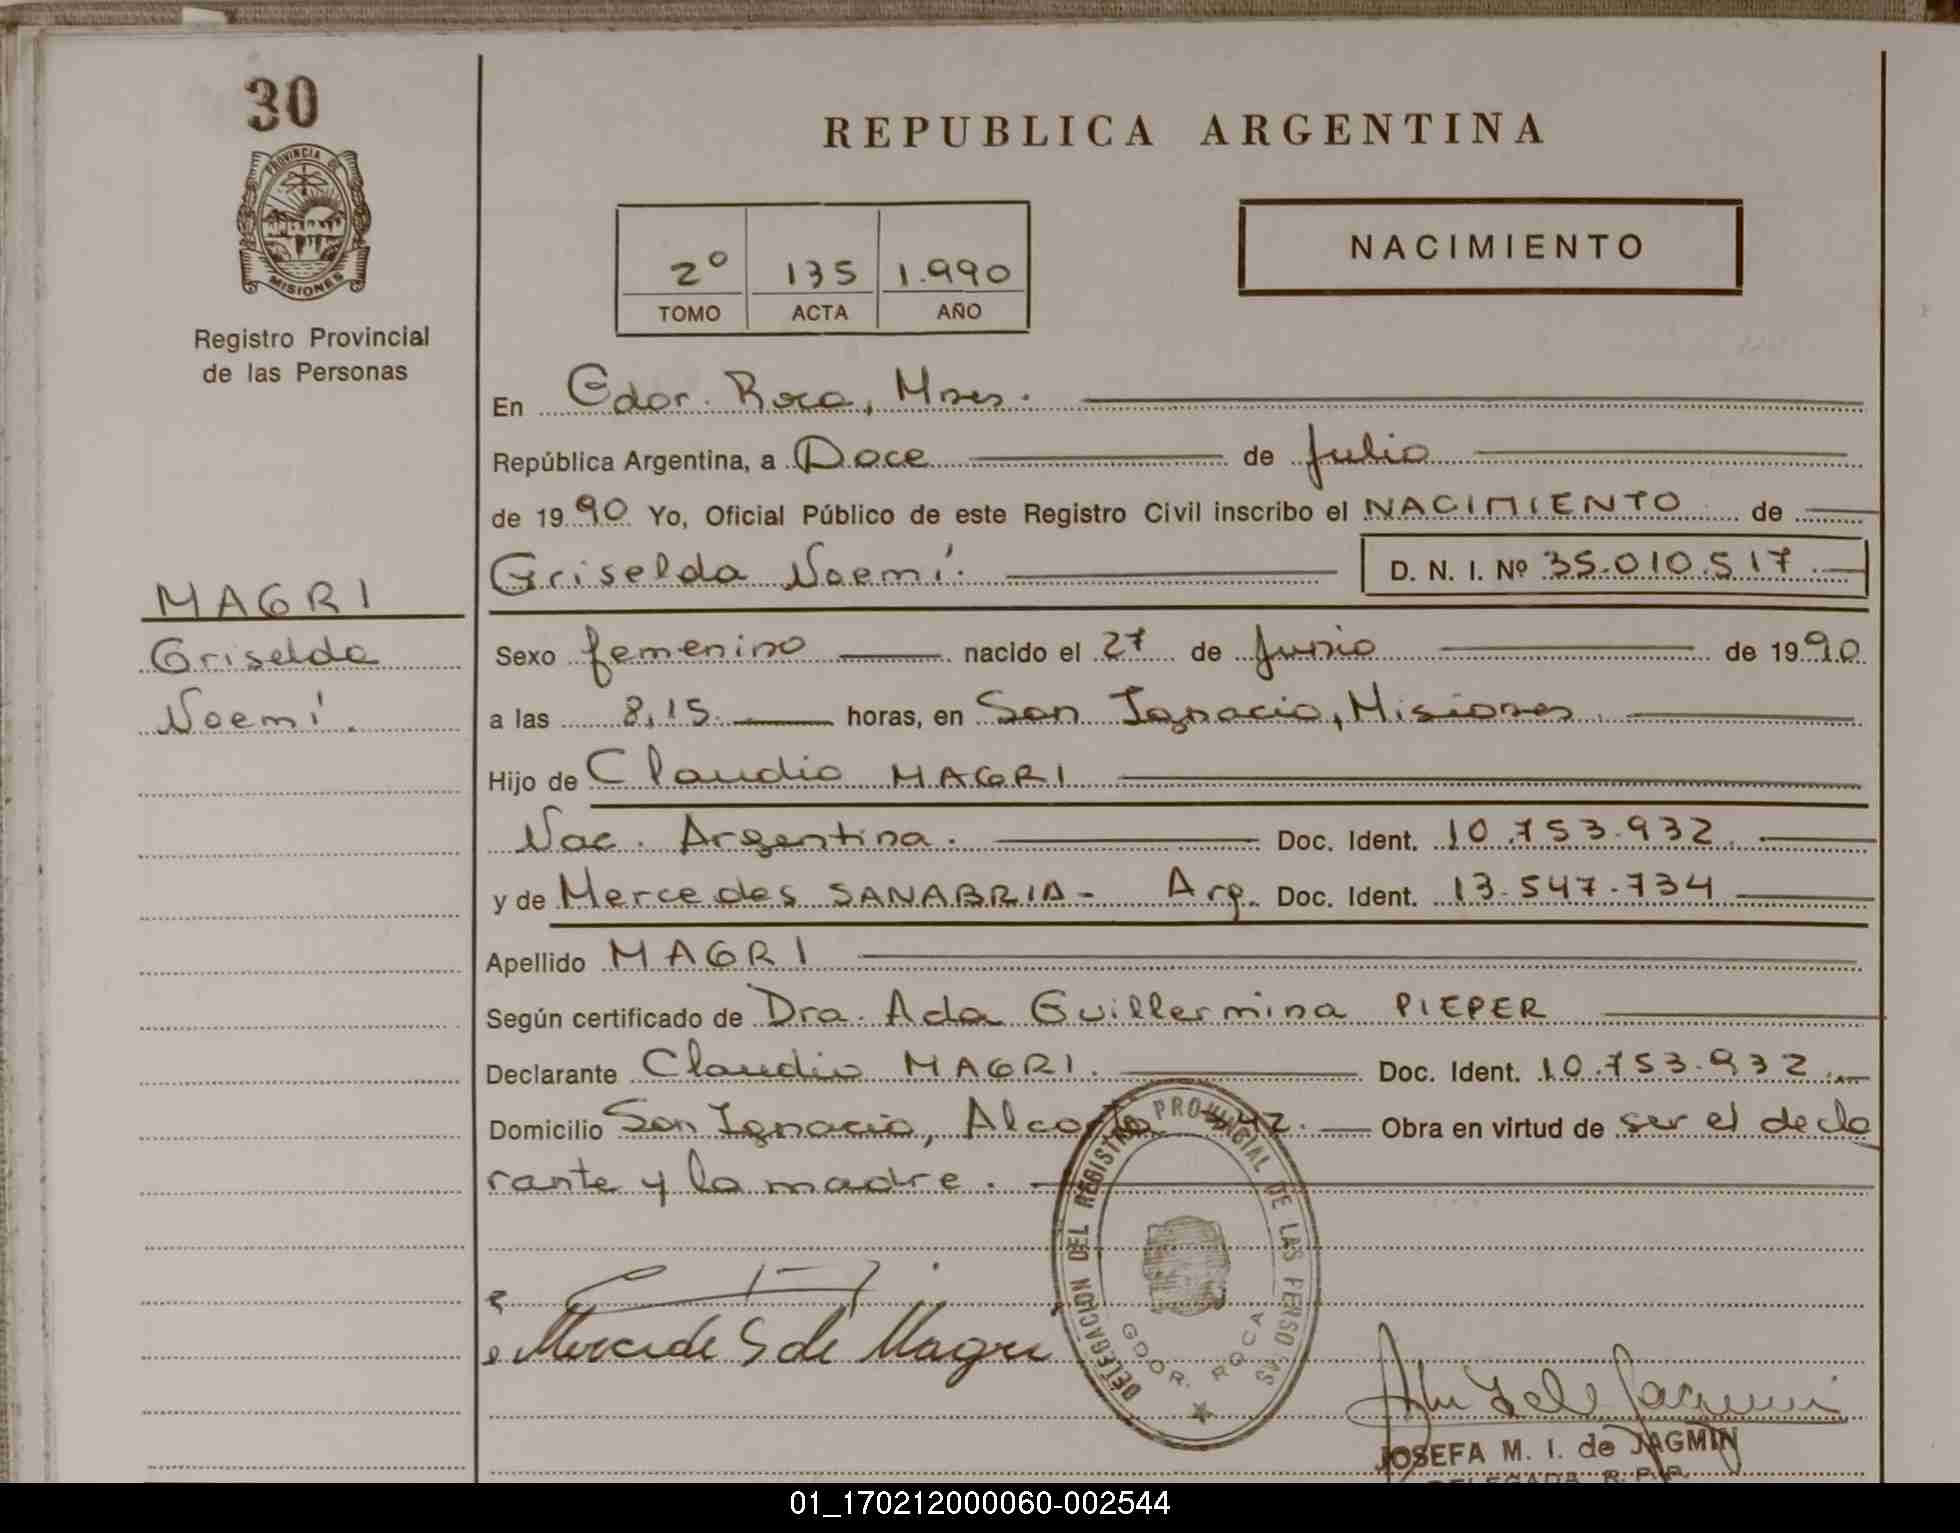 30
PROVINCIA DE
MISIONES
Registro Provincial
de las Personas
MAGRI
Griselda
Noemí.
REPUBLICA ARGENTINA
2º 135 1.990
TOMO ACTA AÑO
NACIMIENTO
En Gdor. Roca, Mnes.
República Argentina, a Doce de Julio
de 1990 Yo, Oficial Público de este Registro Civil inscribo el NACIMIENTO de
Griselda Noemí. D. N. I. Nº 35.010.517
Sexo femenino nacido el 27 de Junio de 1990
a las 8,15 horas, en San Ignacio, Misiones
Hijo de Claudio MAGRI
Nac. Argentina. Doc. Ident. 10.753.932
y de Mercedes SANABRIA - Arg. Doc. Ident. 13.547.734
Apellido MAGRI
Según certificado de Dra. Ada Guillermina PIEPER
Declarante Claudio MAGRI. Doc. Ident. 10.753.932
Domicilio San Ignacio, Obra en virtud de ser el decla
rante y la madre.
DELEGACION DEL REGISTRO PROVINCIAL DE LAS PERSONAS
GDOR. ROCA
Mercede S de Magri
JOSEFA M. I. de JAGMIN
DELEGADA R.P.P.
01_170212000060-002544